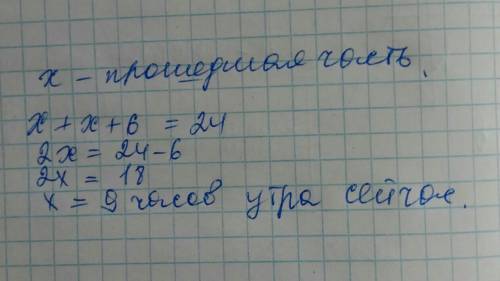 x – прошедшая часть.
x + x + 6 = 24
2x = 24 – 6
2x = 18
x = 9 часов утра сейчас.